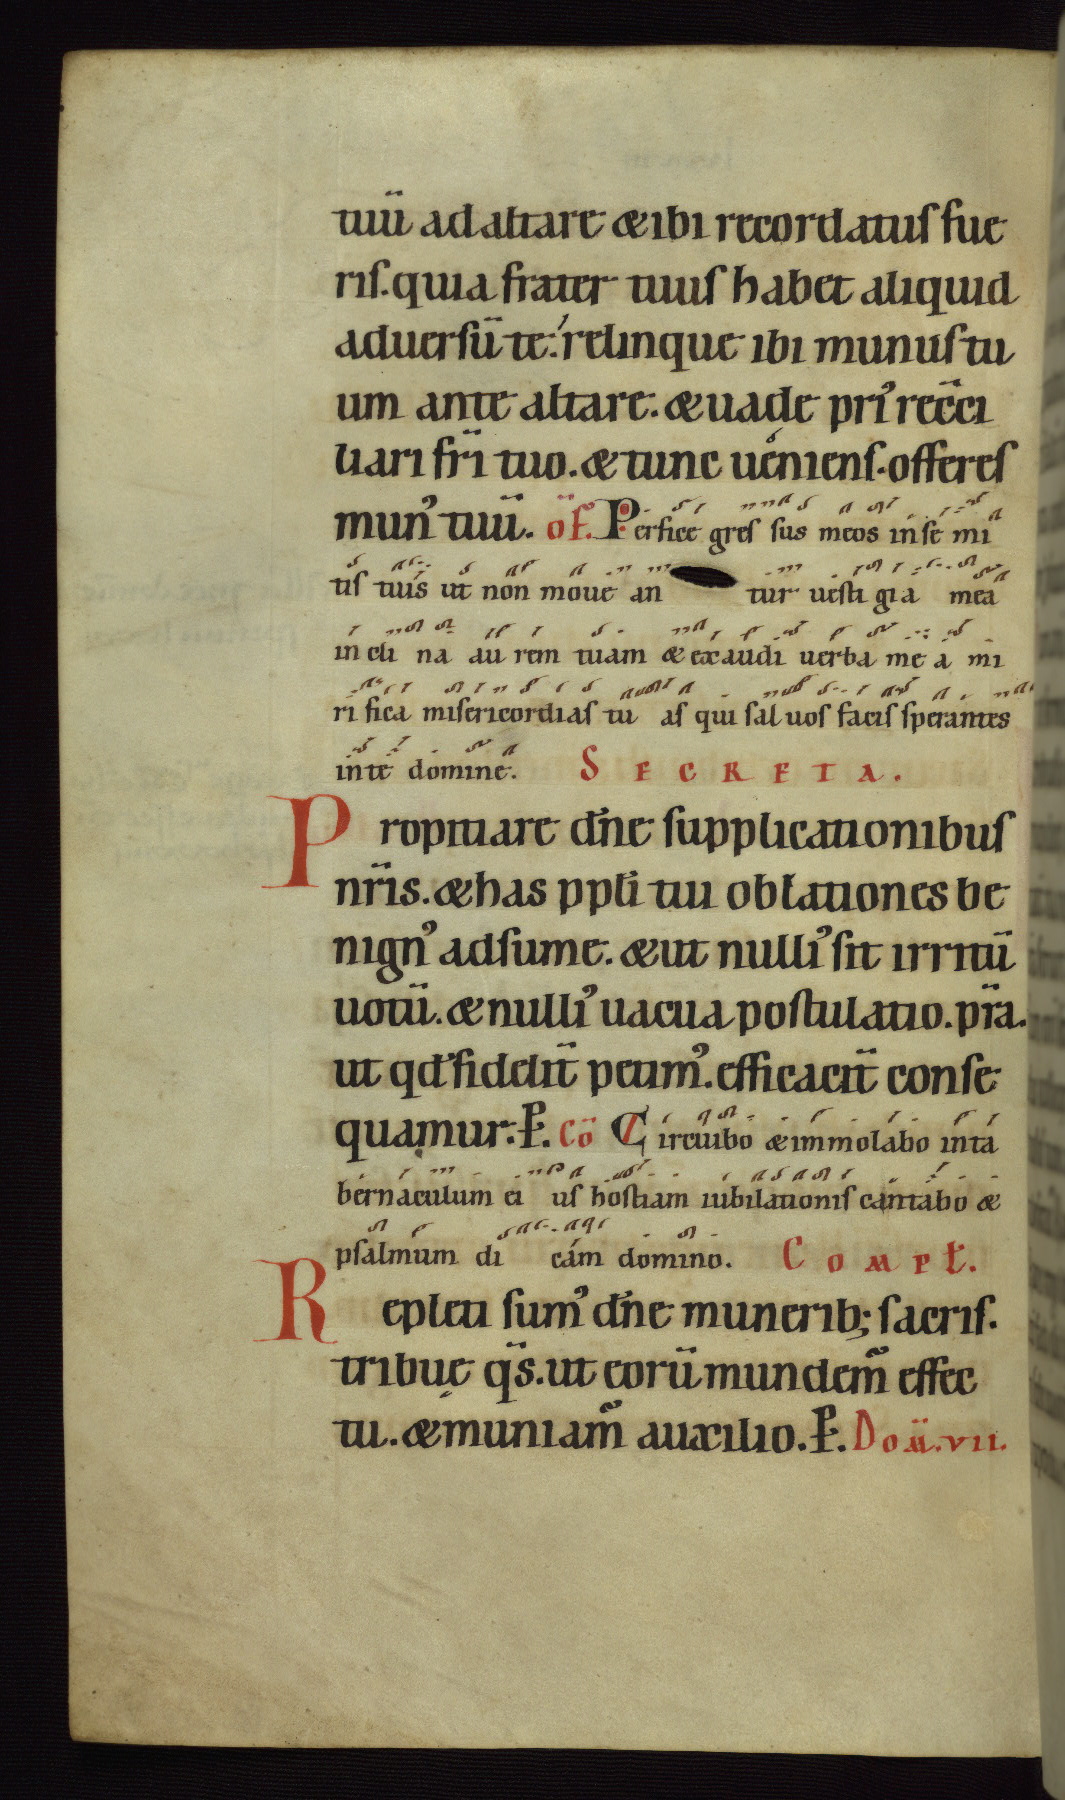 tuū ad altare & ibi recordatus fue
ris. quia frater tuus habet aliquid
aduersū te: relinque ibi munus tu
um ante altare. & uade pri᾿ rec̄ci
liari fr̄i tuo. & tunc ueniens. offeres
mun᾿ tuū. of̄. Perfice gres sus meos in se mi
tis tuis ut non moue an tur uesti gi a mea
in cli na au rem tuam & exaudi uerba me a mi
ri fica misericordias tu as qui sal uos facis sperantes
in te domine. SECRETA.
Propitiare dn̄e supplicationibus
nr̄is. & has ppl̄i tui oblationes be
nign᾿ adsume. & ut nulli᾿ sit irritū
uotū. & nulli᾿ uacua postulatio. pr̄a.
ut qd̄ fidelit̄ petim᾿. efficacit̄ conse
quamur. P. Cō Circuibo & immolabo in ta
bernaculum ei us hostiam iubilationis cantabo &
psalmum di cam domino. COMPL̄.
Repleti sum᾿ dn̄e munerib; sacris.
tribue qs̄. ut eorū mundem᾿ effec
tu. & muniam᾿ auxilio. P. Dom̄. VII.